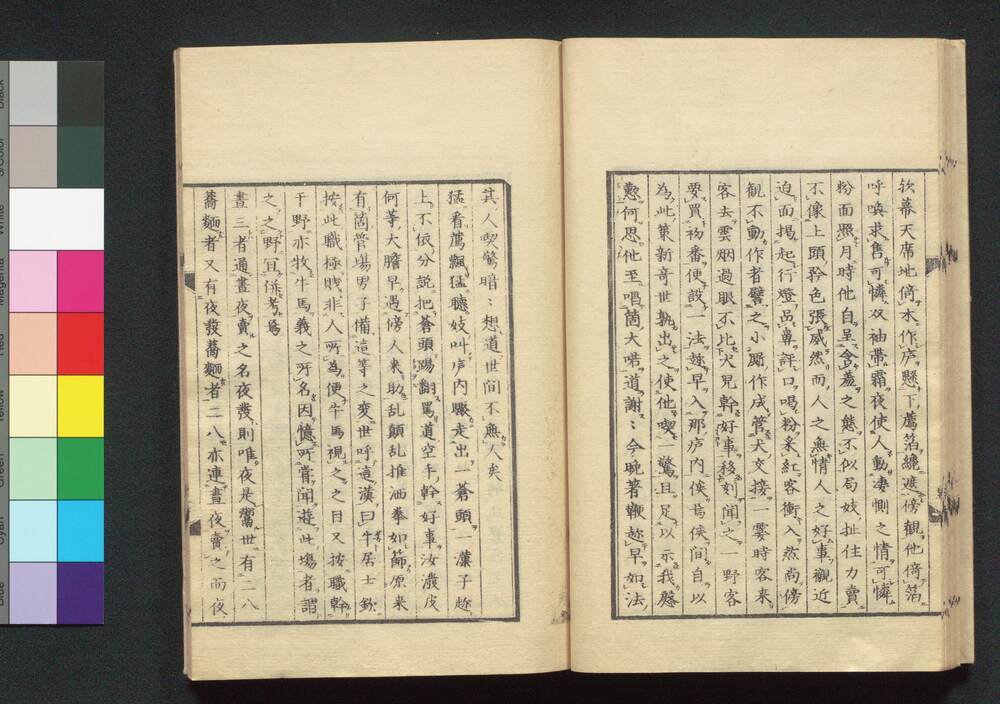 欤幕天席地倚水作庐懸下薦箔纔遮傍観他倚箔
呼喚求售可憐双袖帶霜夜使人動凄惻之情可憐
粉面照月時他自呈含羞之態不似局妓扯住力賣
不像上頭矜色張威然而人之無情人之好事觀近
迫面掲起行燈品鼻評口喝粉采紅客衝入然尚傍
観不動作者譬之小厮作成管犬交接一霎時客来
客去雲烟過眼不比犬児幹好事移刻聞之一野客
要買初番便設一法趂早入那庐内俟焉俟間自以
為此策新奇世孰出之使他喫一驚且足以示我慇
懃何思他至唱箇大喏道謝々今晩著鞭趂早如法
其人喫驚暗々想道世間不無人矣
猛看薦飄猛聴妓叫庐内驟走出一蒼頭一漢子趂
上不依分説把蒼頭踢翻罵道空手幹好事汝潑皮
何等大膽早遇傍人来助乱顛乱推洒拳如篩原来
有箇管場男子備這等之変世呼這漢曰牛居士欤
按此職極賎非人所為便牛馬視之之目又按職幹
于野亦牧牛馬義之所名因憶所嘗聞遊此塲者謂
之之野冝併考焉
晝三者通晝夜賣之名夜發則唯夜是鬻世有二八
蕎麺者又有夜發蕎麺者二八亦連晝夜賣之而夜